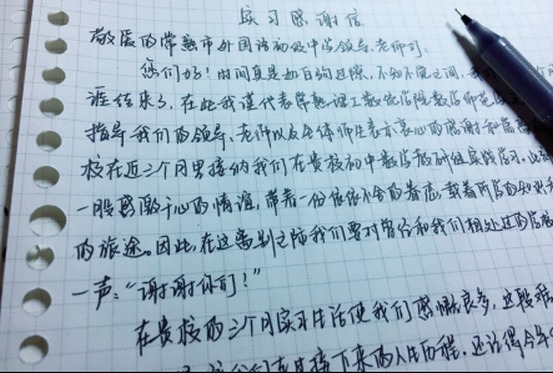 实习感谢信
敬爱的常熟市外国语初级中学领导、老师们:
您们好!时间真是如白驹过隙,不知不觉之间,我们
涯结束了,在此我谨代表常熟理工数统学院数学师范
指导我们的领导、老师以及全体师生表示衷心的感谢和
校在近三个月里接纳我们在贵校初中数学教研组实践学习,
一股感激于心的情谊,带着一份依依不舍的眷恋,载着所学的知识
的旅途。因此,在这离别之际我们要对曾经和我们相处过的
一声:“谢谢你们!”
在贵校的三个月实习生活使我们感慨良多,这段
我们在接下来的人生历程,还记得今年